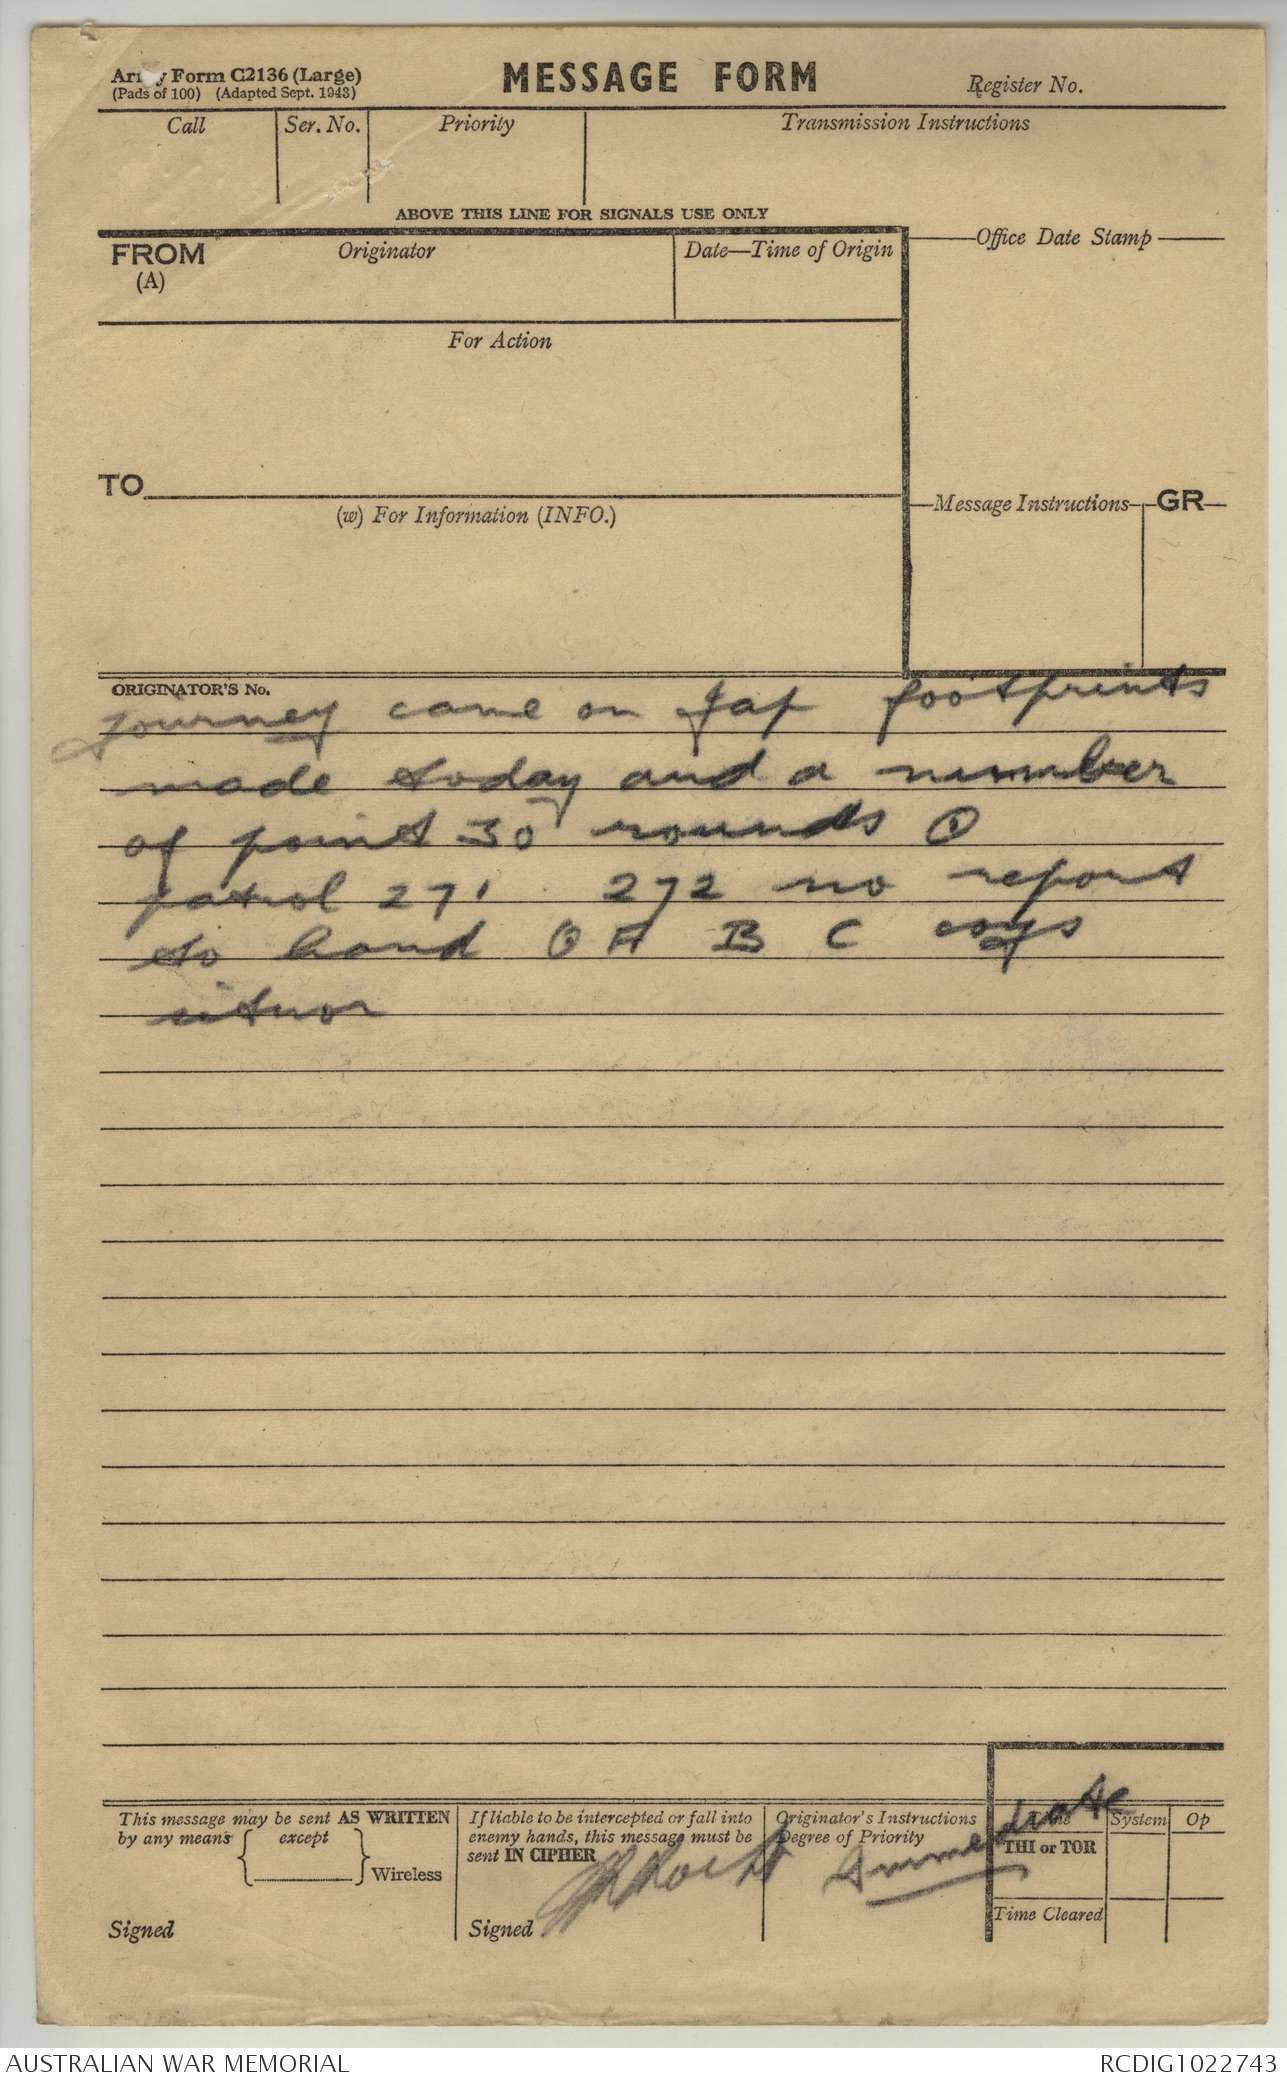 Army Form C2136 (Large)
(Pads of 100) (Adapted Sept. 1943)
MESSAGE FORM
Register No.
Call
Ser. No.
Priority
Transmission Instructions
ABOVE THIS LINE FOR SIGNALS USE ONLY
FROM
(A)
Originator
Date—Time of Origin
Office Date Stamp
For Action
TO
(w) For Information (INFO.)
Message Instructions
GR
ORIGINATOR'S No.
journey came on Jap footprints
made today and a number
of point 30 rounds ⊙
patrol 271 272 no report
to hand ⊙ A B C coys
This message may be sent AS WRITTEN
by any means except
Wireless
Signed
If liable to be intercepted or fall into
enemy hands, this message must be
sent IN CIPHER
Signed
Originator's Instructions
Degree of Priority
Immediate
System
Op
THI or TOR
Time Cleared
AUSTRALIAN WAR MEMORIAL
RCDIG1022743